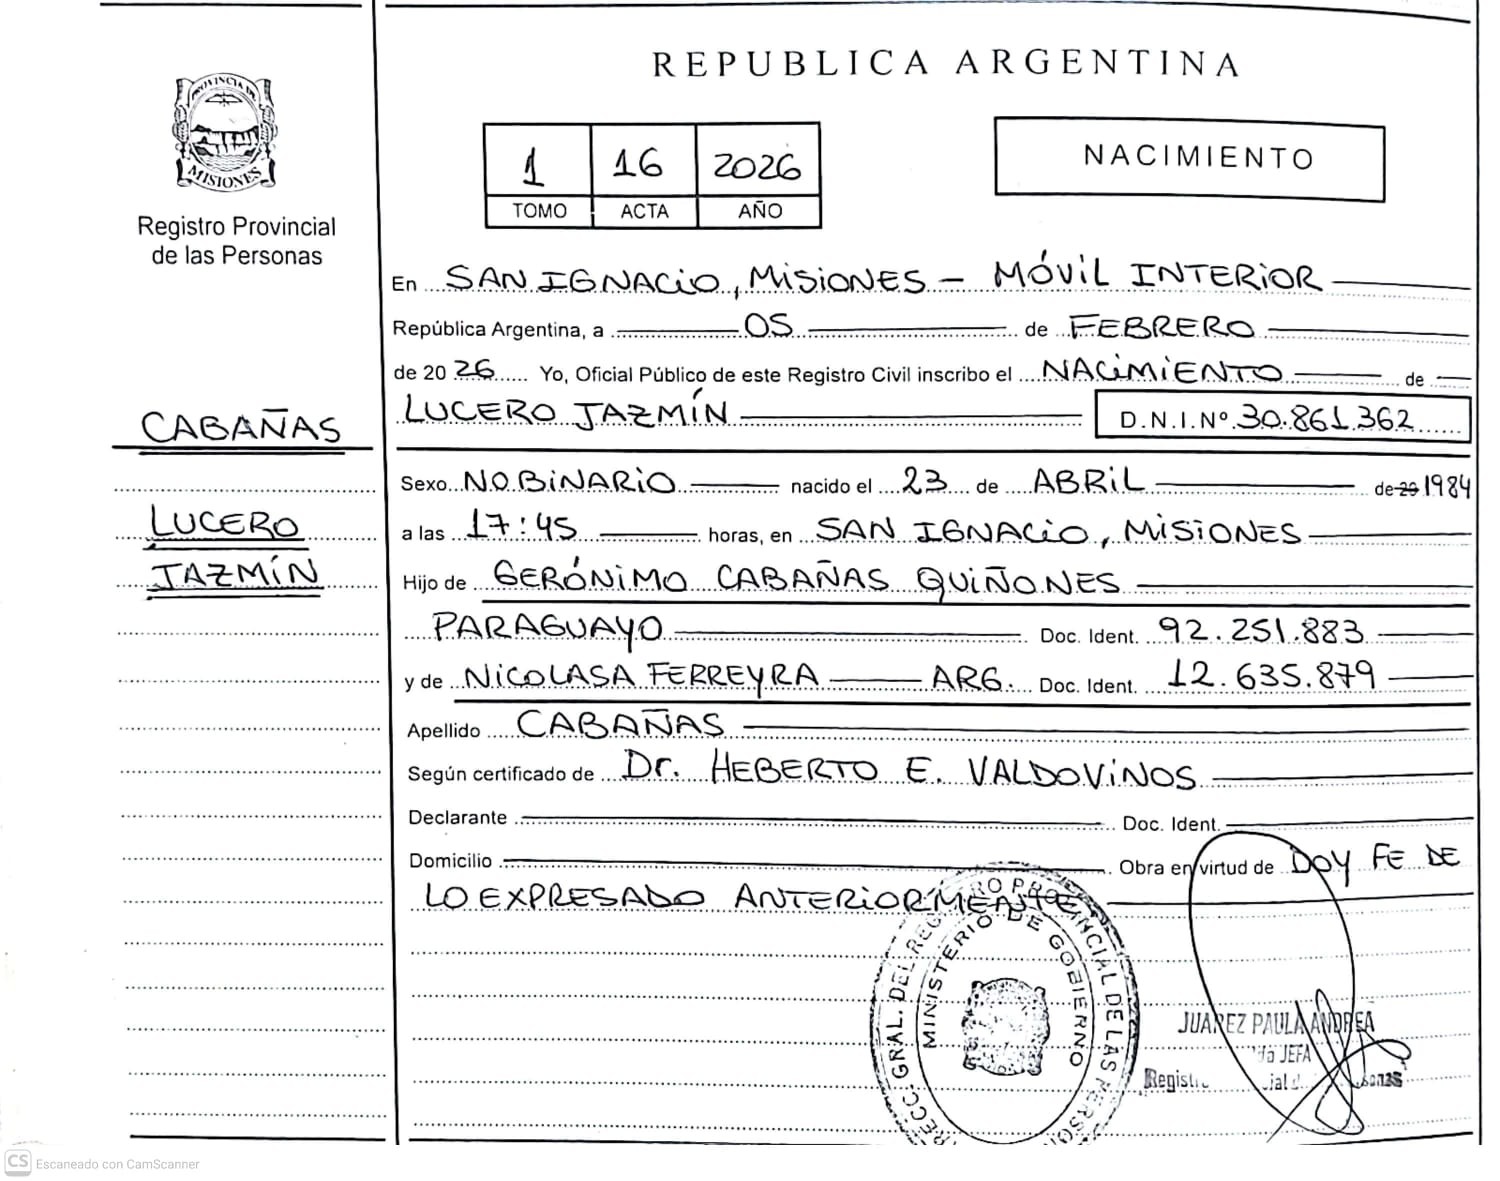 REPUBLICA ARGENTINA
PROVINCIA DE
MISIONES
Registro Provincial
de las Personas
1 16 2026
TOMO ACTA AÑO
NACIMIENTO
En SAN IGNACIO, MISIONES - MÓVIL INTERIOR
República Argentina, a 05 de FEBRERO
de 20 26 Yo, Oficial Público de este Registro Civil inscribo el NACIMIENTO de
LUCERO JAZMÍN D.N.I.Nº 30.861.362
CABAÑAS
LUCERO
JAZMÍN
Sexo NO BINARIO nacido el 23 de ABRIL de 20 1984
a las 17:45 horas, en SAN IGNACIO, MISIONES
Hijo de GERÓNIMO CABAÑAS QUIÑONES
PARAGUAYO Doc. Ident. 92.251.883
y de NICOLASA FERREYRA ARG. Doc. Ident. 12.635.879
Apellido CABAÑAS
Según certificado de Dr. HEBERTO E. VALDOVINOS
Declarante Doc. Ident.
Domicilio Obra en virtud de DOY FE DE
LO EXPRESADO ANTERIORMENTE
GRAL. DEL REG PROVINCIAL DE LAS
MINISTERIO DE GOBIERNO
JUAREZ PAULA ANDREA
JEFA
CS Escaneado con CamScanner